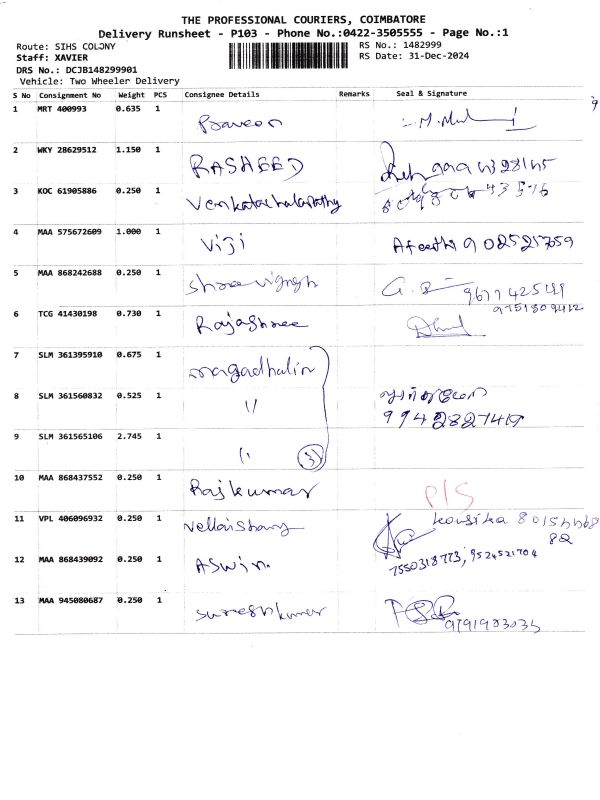 THE PROFESSIONAL COURIERS, COIMBATORE
Delivery Runsheet - P103 - Phone No.:0422-3505555 - Page No.:1
Route: SIHS COLONY RS No.: 1482999
Staff: XAVIER RS Date: 31-Dec-2024
DRS No.: DCJB148299901
Vehicle: Two Wheeler Delivery
S No Consignment No Weight PCS Consignee Details Remarks Seal & Signature
1 MRT 400993 0.635 1 Praveen
2 WKY 28629512 1.150 1 RASHEED
3 KOC 61905886 0.250 1 Venkatachalapathy
4 MAA 575672609 1.000 1 Viji
5 MAA 868242688 0.250 1 Shree vignesh
9751809412
6 TCG 41430198 0.730 1 Rajashree
7 SLM 361395910 0.675 1
8 SLM 361560832 0.525 1 "
9942827419
9 SLM 361565106 2.745 1 " 3
10 MAA 868437552 0.250 1 Rajkumar P/S
11 VPL 406096932 0.250 1 kousika
82
12 MAA 868439092 0.250 1 Aswin 7550318773, 9524521704
13 MAA 945080687 0.250 1 Sureshkumar
9791983035